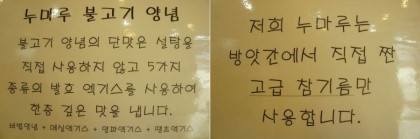 누마루 불고기 양념
불고기 양념의 단맛은 설탕을
직접 사용하지 않고 5가지
종류의 발효 엑기스를 사용하여
한층 깊은 맛을 냅니다.
비법양념 + 매실엑기스 + 양파엑기스 + 땡초엑기스
저희 누마루는
방앗간에서 직접 짠
고급 참기름만
사용합니다.